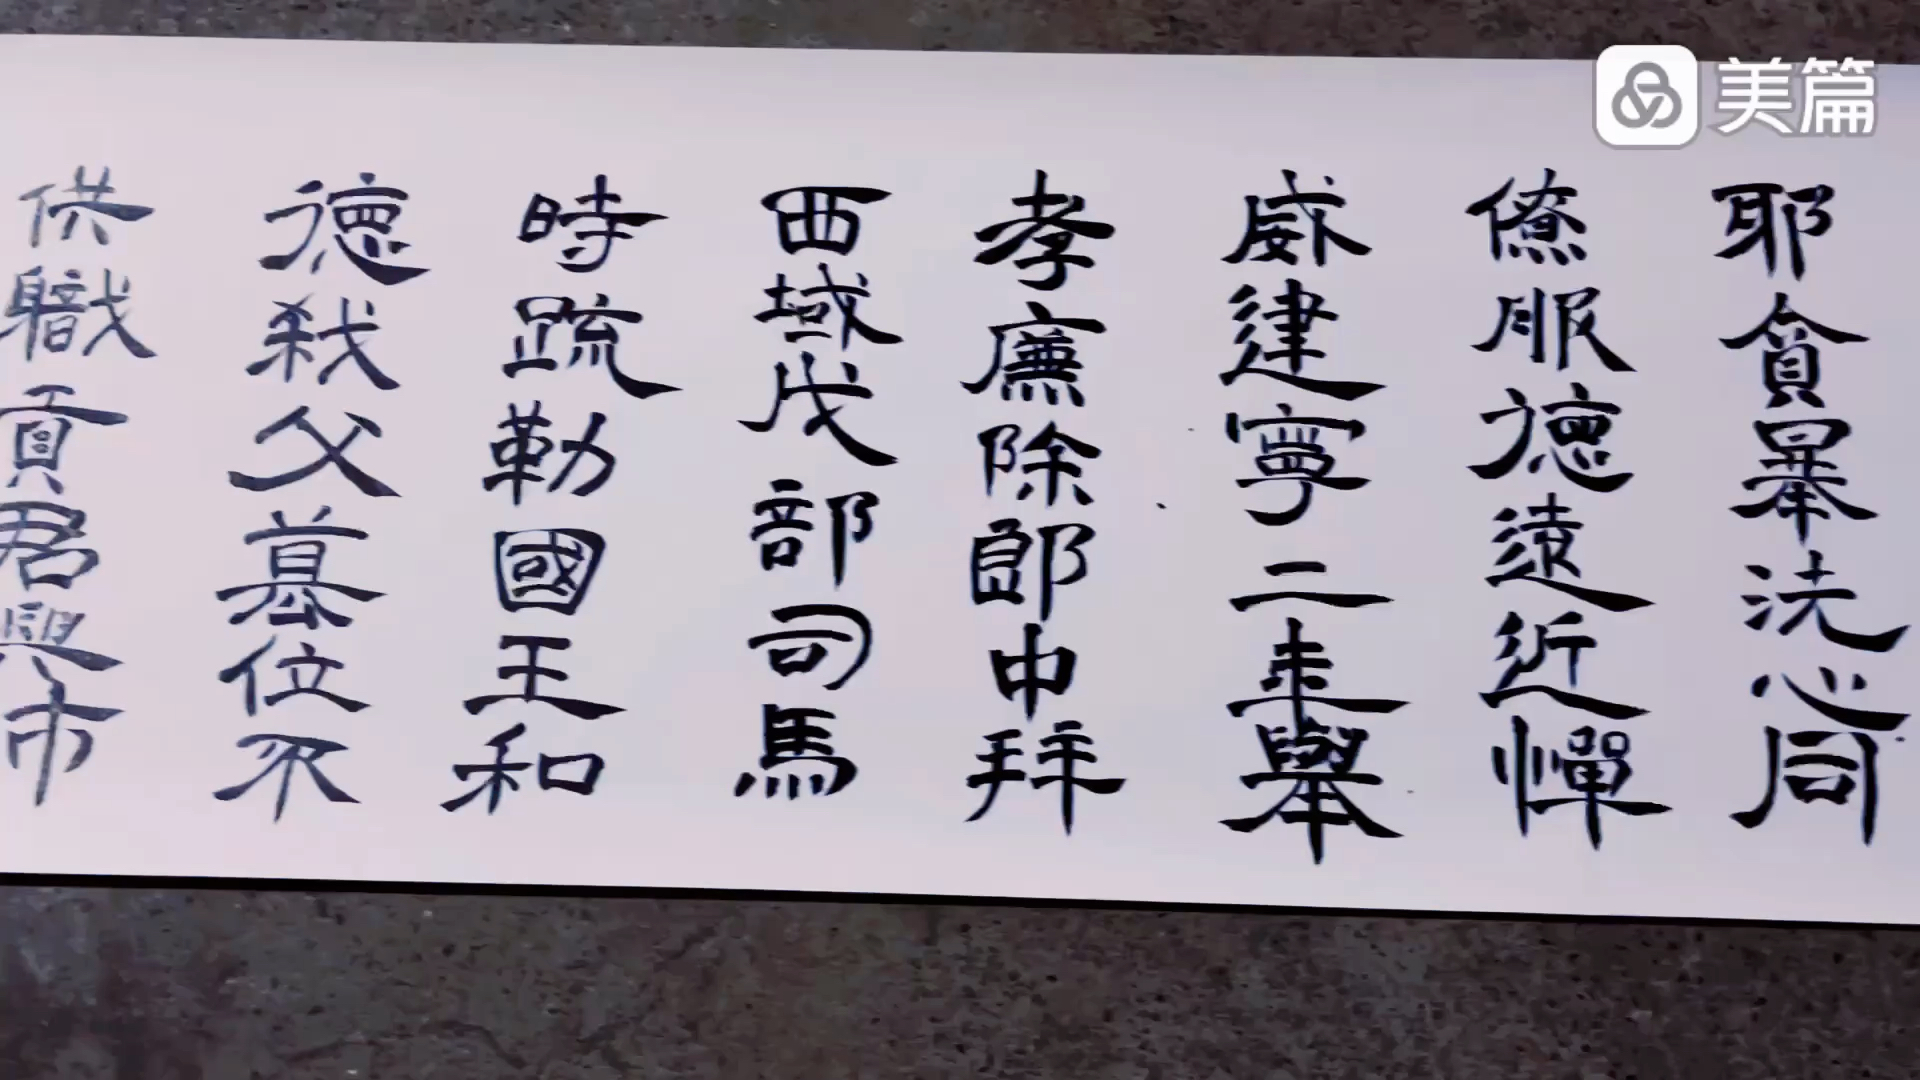 美篇
耶貪暴洗心同
僚服德遠近憚
威建寧二年舉
孝廉除郎中拜
西域戊部司馬
時疏勒國王和
德弒父篡位不
供職貢君興市